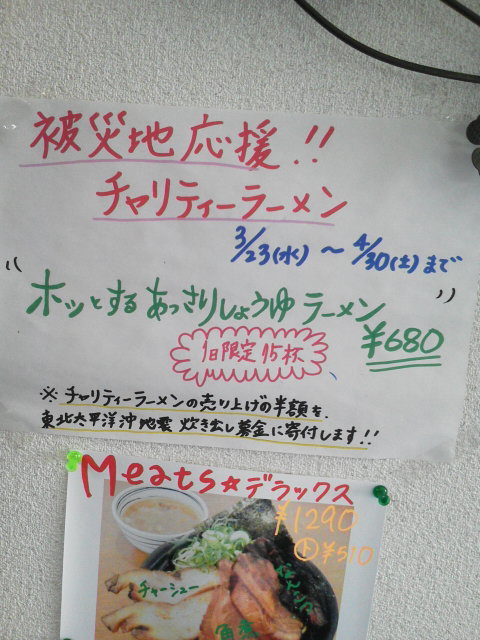 被災地応援!!
チャリティーラーメン
3/23(水)～4/30(土)まで
"ホッとするあっさりしょうゆラーメン"
¥680
1日限定15杯
※チャリティーラーメンの売り上げの半額を、
東北太平洋沖地震 炊き出し募金に寄付します!!
Meats☆デラックス
¥1290
⊕¥510
チャーシュー
角煮